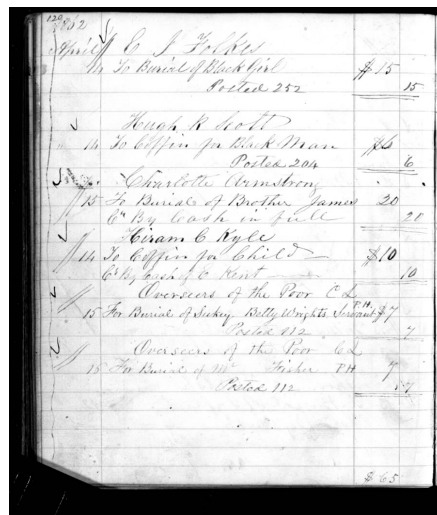 120
1862
April E J Folkes
14 To Burial of Black Girl $15
Posted 252 15
Hugh R Scott
14 To Coffin for Black Man $6
Posted 204 6
Charlotte Armstrong
15 To Burial of Brother James 20
Cr By Cash in full 20
Hiram C Kyle
14 To Coffin for Child $10
Cr By Cash of C Kent 10
Overseers of the Poor C L
15 For Burial of Suckey Betty Wrights Servant P.H. $7
Posted 112 7
Overseers of the Poor C L
15 For Burial of Mr Fisher P H 7
Posted 112 7
$65